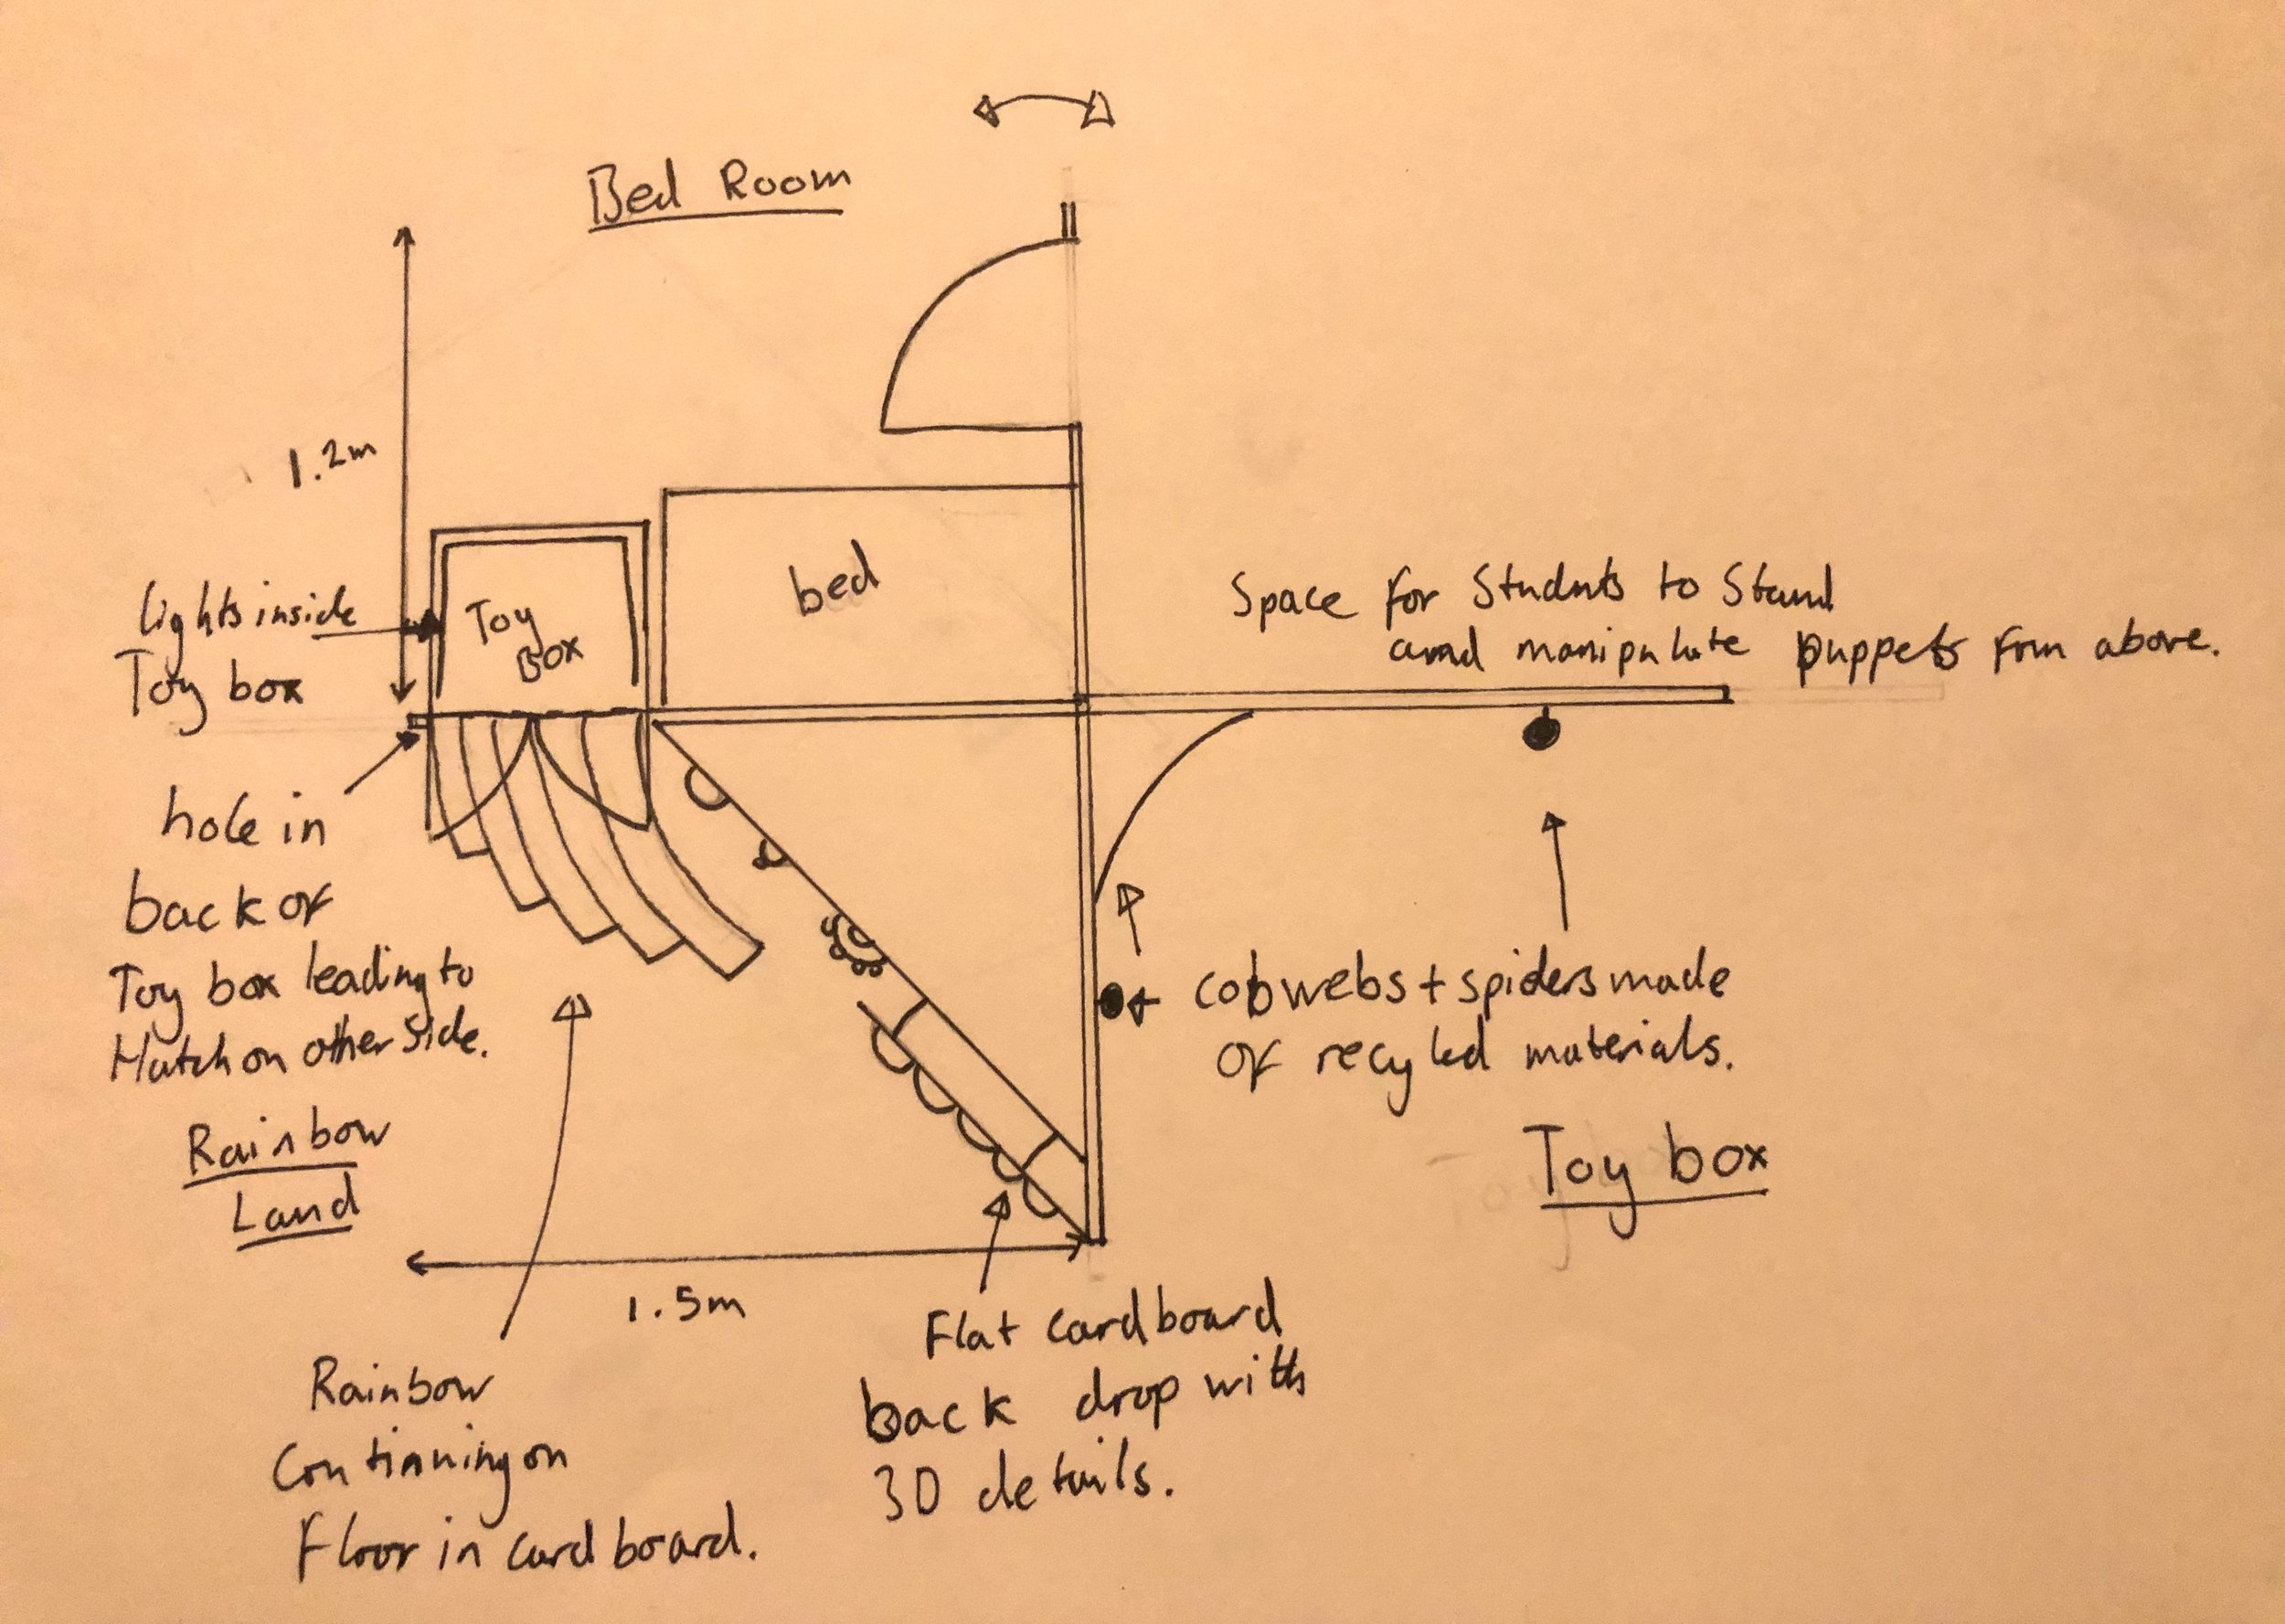 Bed Room
1.2m
Toy
Box
bed
lights inside
Toy box
Space for Students to Stand
and manipulate puppets from above.
hole in
back of
Toy box leading to
Hatch on other side.
Rainbow
Land
cobwebs + spiders made
of recycled materials.
Toy box
1.5m
Rainbow
Continuing on
Floor in cardboard.
Flat cardboard
back drop with
3D details.